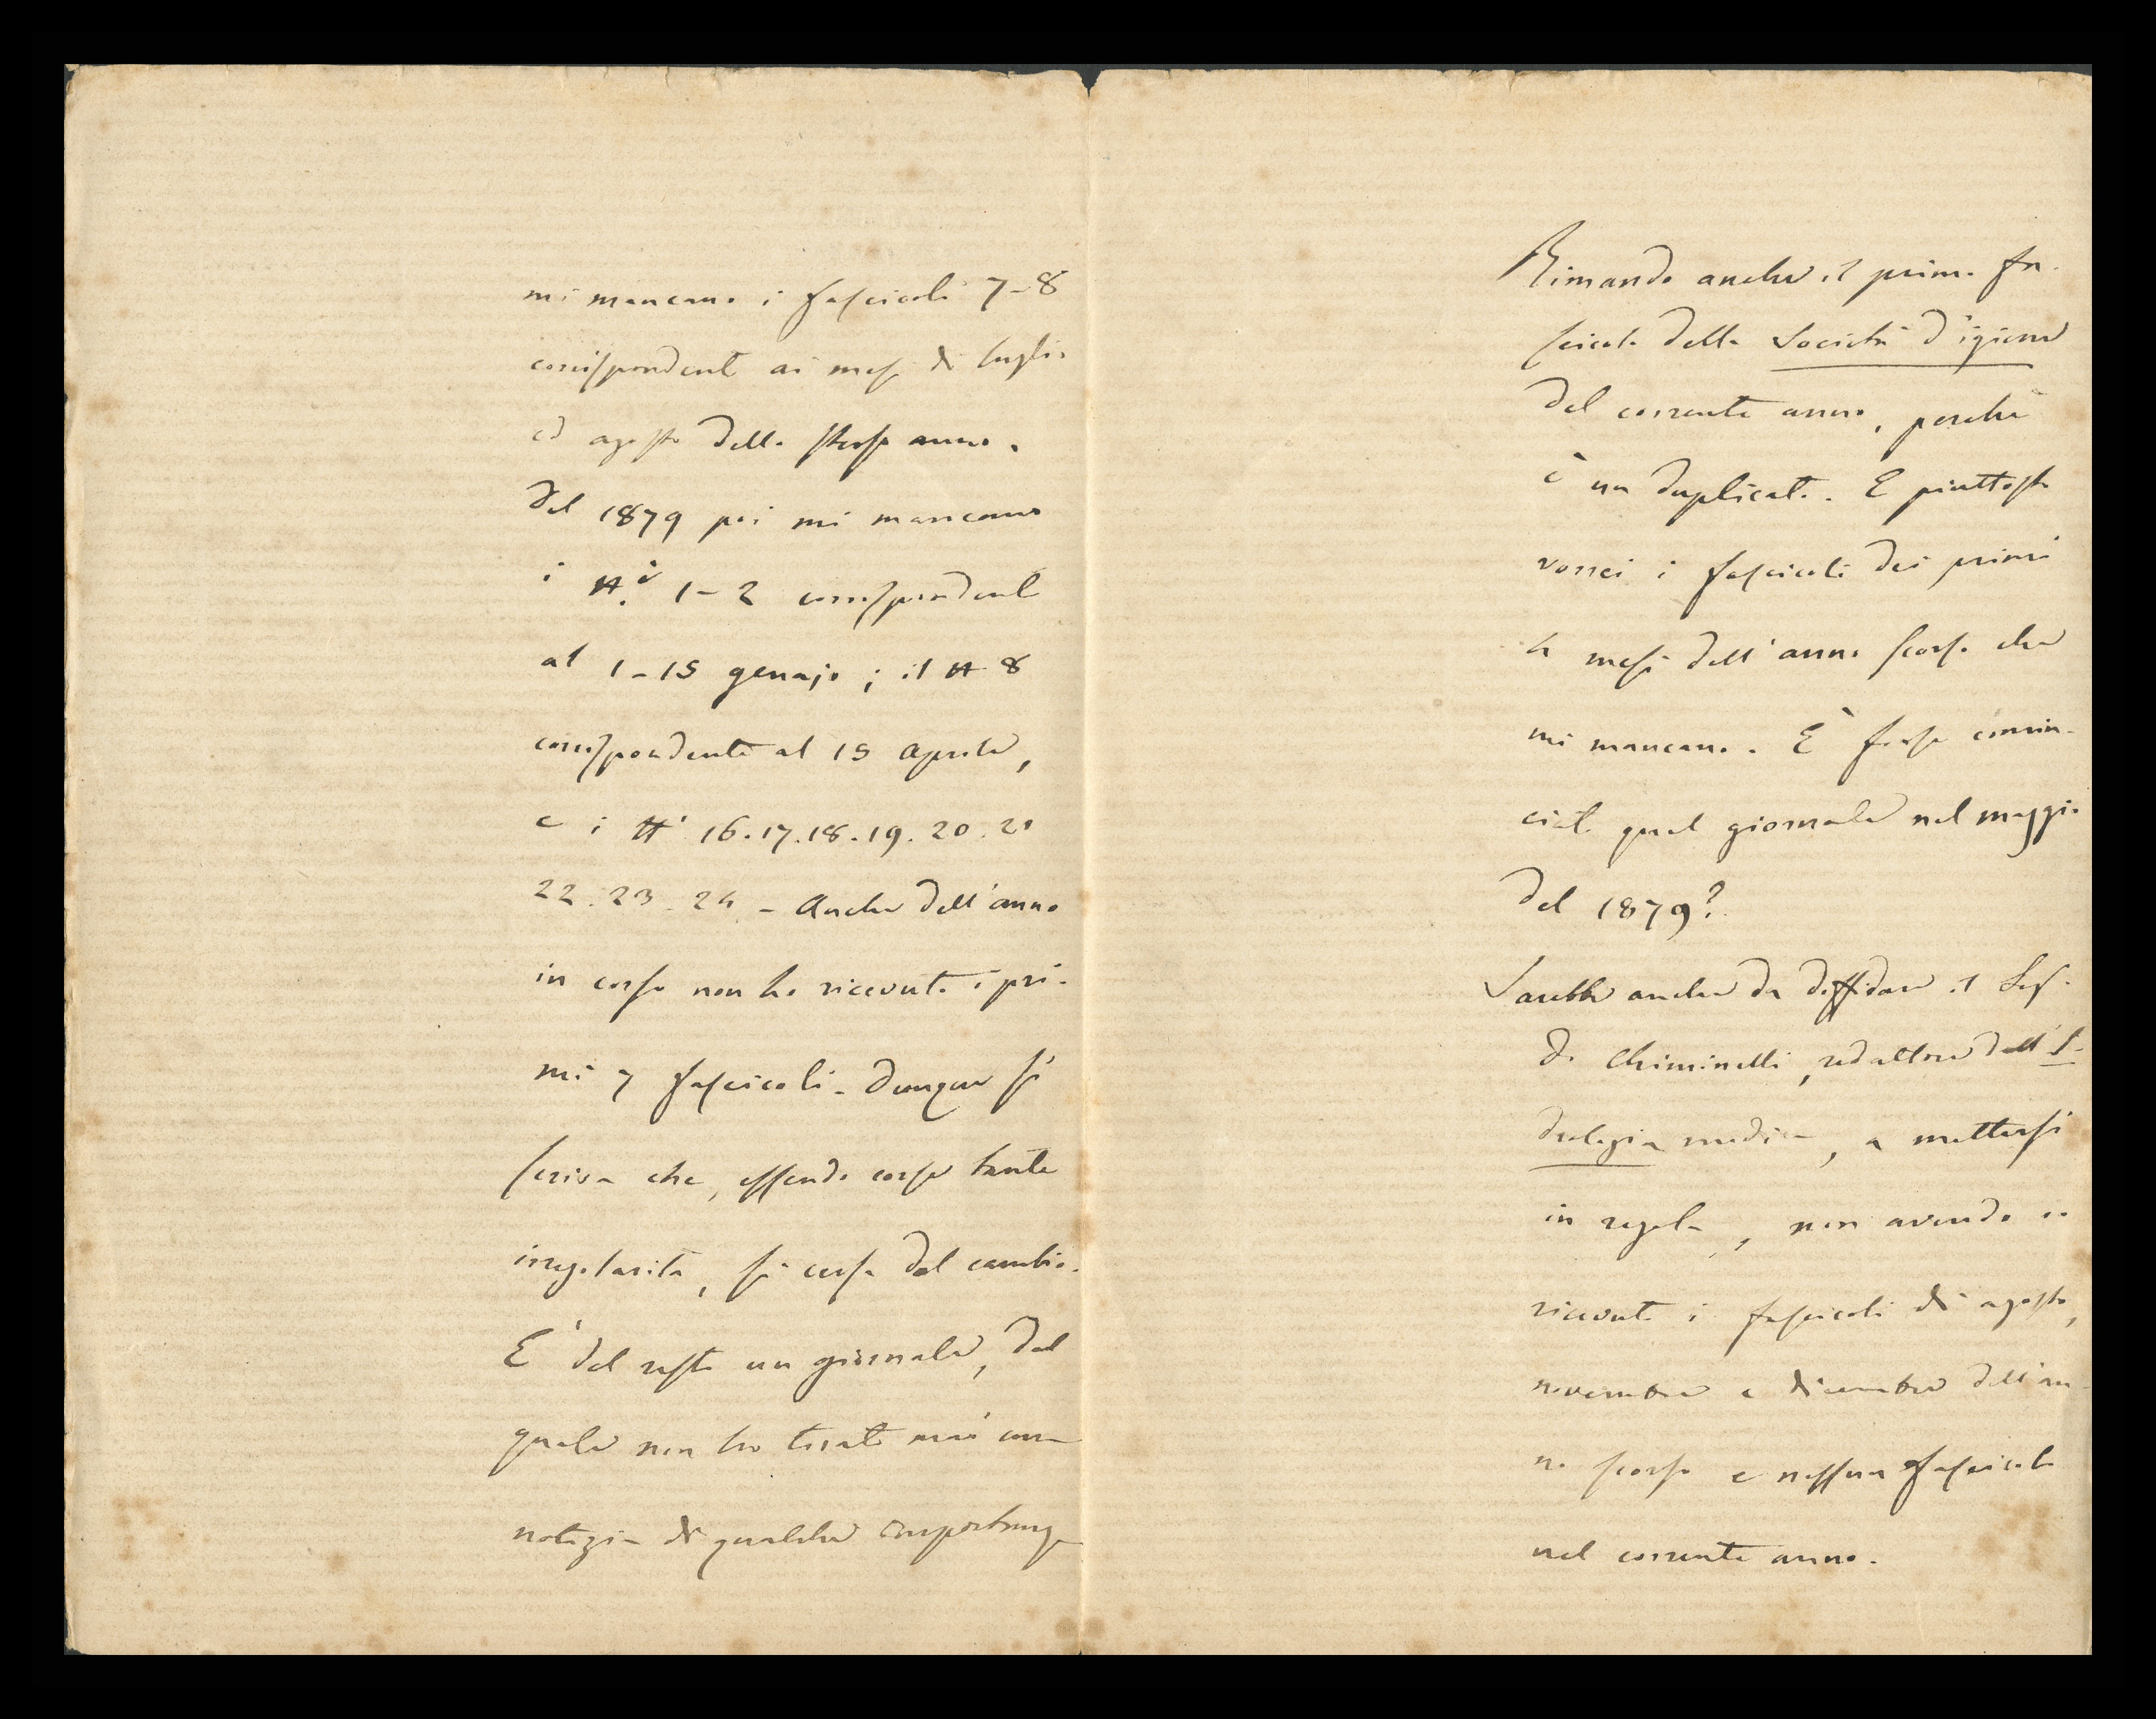 mi mancano i fascicoli 7-8
corrispondenti ai mesi di luglio
ed agosto dello stesso anno.
Del 1879 poi mi mancano
i N.i 1-2 corrispondenti
al 1-15 genajo; il N 8
corrispondente al 15 aprile,
e i Ni 16.17.18.19.20.21
22.23.24 - Anche dell'anno
in corso non ho ricevuto i pri-
mi 7 fascicoli - Dunque si
scriva che, essendo corse tante
irregolarità, si cessa dal cambio.
E' del resto un giornale, dal
quale non ho tirato mai una
notizia di qualche importanza
Rimando anche il primo fa-
scicolo della Società d'igiene
del corrente anno, perchè
è un duplicato. E piuttosto
vorrei i fascicoli dei primi
4 mesi dell'anno scorso che
mi mancano. È forse comin-
ciato quel giornale nel maggio
del 1879?
Sarebbe anche da diffidare il
Chiminelli, redattore dell'I-
drologia medica, a mettersi
in regola, non avendo io
ricevuto i fascicoli di agosto,
novembre e dicembre dell'an-
no scorso e nessun fascicolo
nel corrente anno.